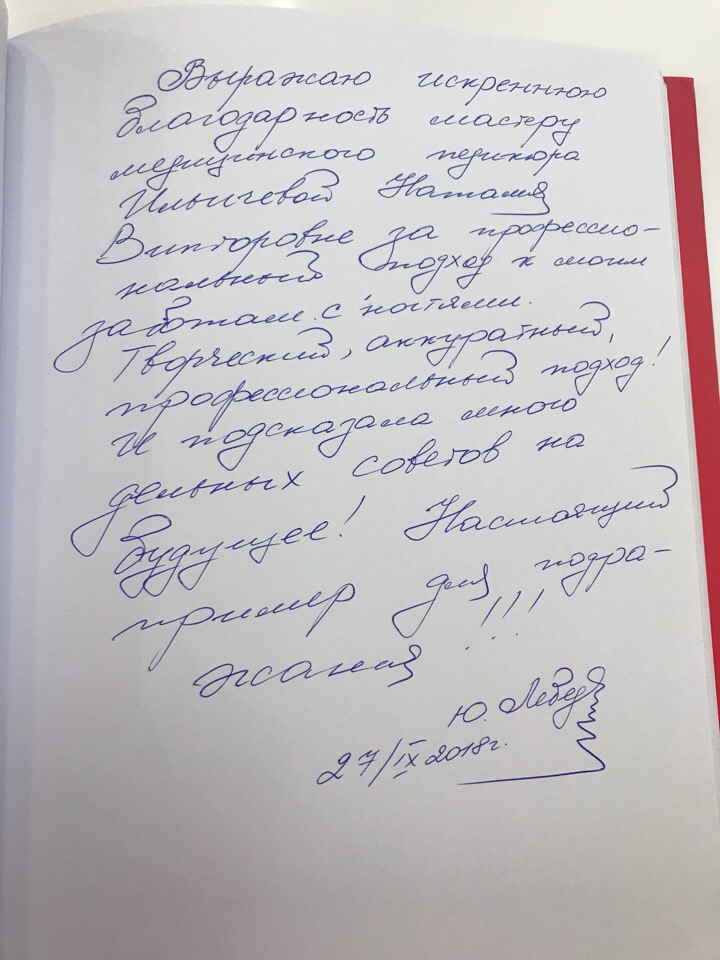 Выражаю искреннюю
благодарность мастеру
медицинского педикюра
Ильичевой Наталия
Викторовне за профессио-
нальный подход к моим
заботам с ногтями.
Творческий, аккуратный,
профессиональный подход!
И подсказала много
дельных советов на
будущее! Настоящий
пример для подра-
жания!!!
Ю.
27/IX 2018г.